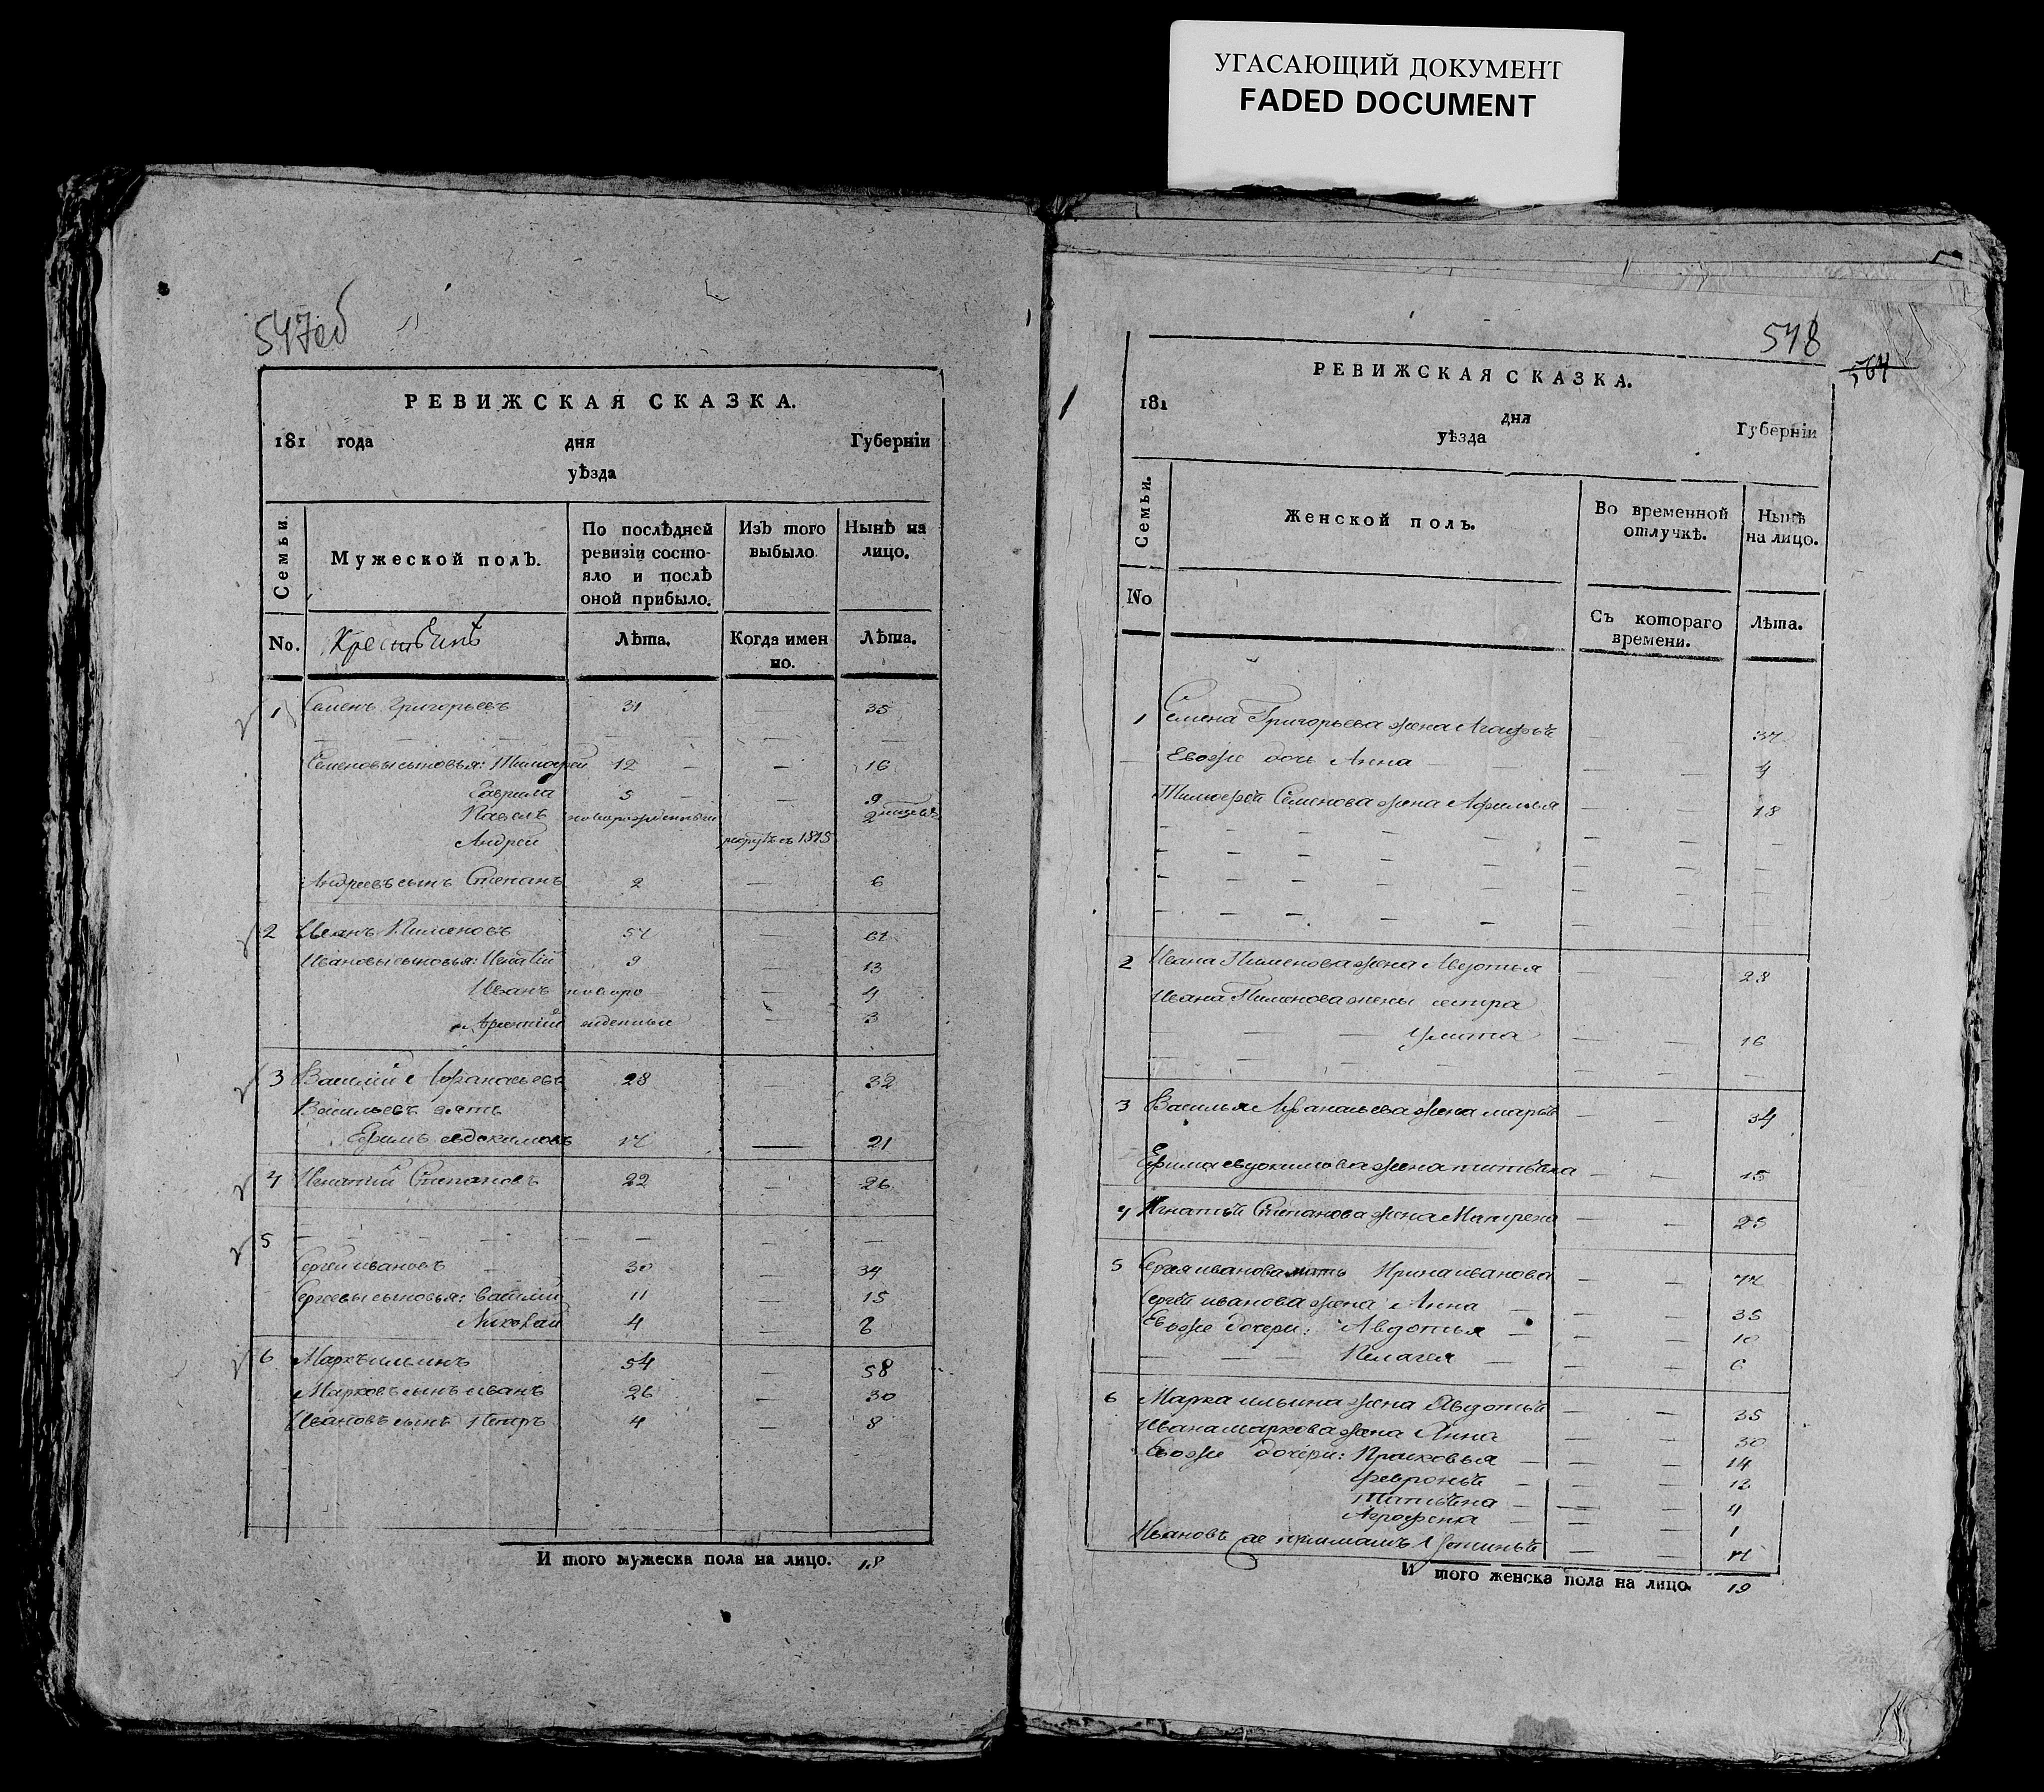 УГАСАЮЩИЙ ДОКУМЕНТ
FADED DOCUMENT
547об
РЕВИЖСКАЯ СКАЗКА.
181 года дня Губерніи
уѣзда
Семьи. Мужеской полъ. По послѣдней ревизіи состояло и послѣ оной прибыло. Изъ того выбыло. Нынѣ на лицо.
No. Лѣта. Когда имен но. Лѣта.
1 Семенъ Григорьевъ 31 — 35
Семеновы сыновья: Тимофей 12 — 16
Гаврила 5 — 9
Павелъ новорожденный 2
Андрей рекрутъ въ 1813
Андреевъ сынъ Степанъ 2 — 6
2 Иванъ Пименовъ 57 — 61
Ивановы сыновья: Игнатій 9 — 13
Иванъ новоро — 4
Арсентий жденные — 3
3 Василий Афанасьевъ 28 — 32
Васильевъ зять
Ефимъ евдокимовъ 17 — 21
4 Игнатий Степановъ 22 — 26
5 — — — — — —
Сергей ивановъ 30 — 34
Сергеевы сыновья: василий 11 — 15
Николай 4 — 8
6 Маркъ ильинъ 54 — 58
Марковъ сынъ иванъ 26 — 30
Ивановъ сынъ Петръ 4 — 8
И того мужеска пола на лицо. 18
548
564
РЕВИЖСКАЯ СКАЗКА.
181 дня Губерніи
уѣзда
Семьи. Женской полъ. Во временной отлучкѣ. Нынѣ на лицо.
No Съ котораго времени. Лѣта.
1 Семена Григорьева жена Агафья — — 37
Евоже дочь Анна — — 4
Тимофей Семенова жена Афимья — — 18
2 Ивана Пименова жена Авдотья — — 28
Ивана Пименова жены сестра
Улита — — 16
3 Василья Афанасьева жена марья — — 34
Ефима евдокимова жена татьяна — — 15
4 Игнатья Степанова жена Матрена — — 25
5 Сергея иванова мать Ирина иванова — — 77
Сергея иванова жена Анна — — 35
Евоже дочери: Авдотья — — 10
Пелагея — — 6
6 Марка ильина жена Авдотья — — 35
Ивана маркова жена Анна — — 30
Евоже дочери: Прасковья — — 14
Февронья — — 12
Татьяна — — 4
Агрофена — — 1
Ивановъ
И того женска пола на лицо. 19